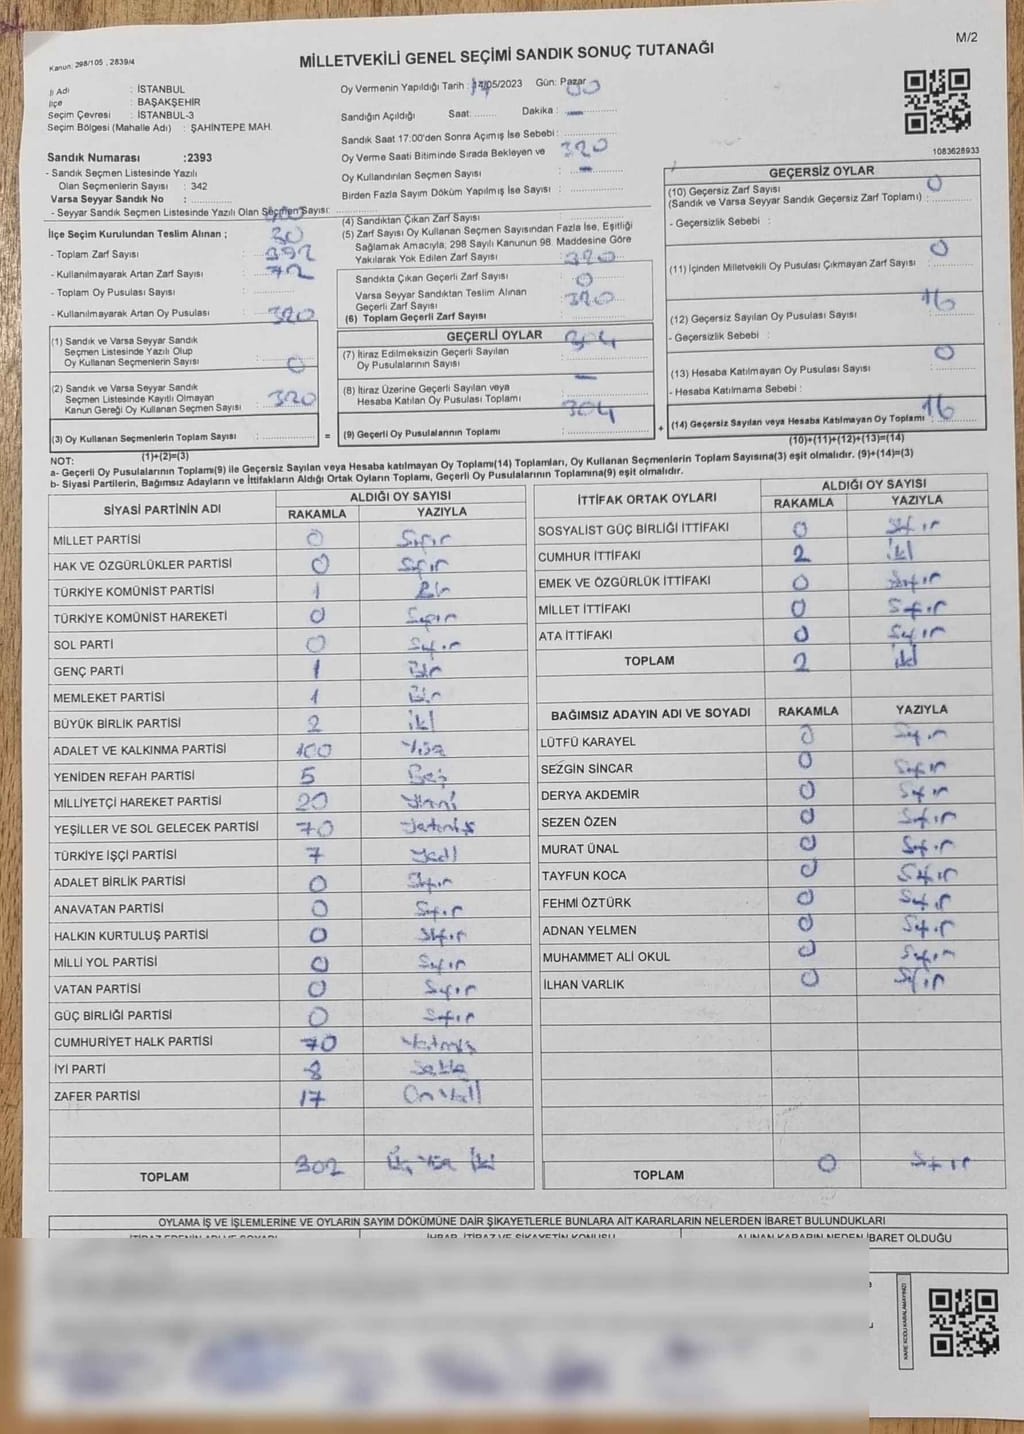 Kanun: 298/105 , 2839/4
MİLLETVEKİLİ GENEL SEÇİMİ SANDIK SONUÇ TUTANAĞI
M/2
İl Adı : İSTANBUL
İlçe : BAŞAKŞEHİR
Seçim Çevresi : İSTANBUL-3
Seçim Bölgesi (Mahalle Adı) : ŞAHİNTEPE MAH.
Sandık Numarası :2393
- Sandık Seçmen Listesinde Yazılı
Olan Seçmenlerin Sayısı : 342
Varsa Seyyar Sandık No :
- Seyyar Sandık Seçmen Listesinde Yazılı Olan Seçmen Sayısı:
İlçe Seçim Kurulundan Teslim Alınan ;
- Toplam Zarf Sayısı : 392
- Kullanılmayarak Artan Zarf Sayısı : 72
- Toplam Oy Pusulası Sayısı :
- Kullanılmayarak Artan Oy Pusulası : 320
(1) Sandık ve Varsa Seyyar Sandık
Seçmen Listesinde Yazılı Olup
Oy Kullanan Seçmenlerin Sayısı : 0
(2) Sandık ve Varsa Seyyar Sandık
Seçmen Listesinde Kayıtlı Olmayan
Kanun Gereği Oy Kullanan Seçmen Sayısı : 320
(3) Oy Kullanan Seçmenlerin Toplam Sayısı :
(1)+(2)=(3)
Oy Vermenin Yapıldığı Tarih : 14/05/2023 Gün: Pazar
Sandığın Açıldığı Saat: Dakika :
Sandık Saat 17:00'den Sonra Açımış İse Sebebi:
Oy Verme Saati Bitiminde Sırada Bekleyen ve 320
Oy Kullandırılan Seçmen Sayısı :
Birden Fazla Sayım Döküm Yapılmış İse Sayısı :
(4) Sandıktan Çıkan Zarf Sayısı :
(5) Zarf Sayısı Oy Kullanan Seçmen Sayısından Fazla İse, Eşitliği
Sağlamak Amacıyla, 298 Sayılı Kanunun 98. Maddesine Göre
Yakılarak Yok Edilen Zarf Sayısı : 320
Sandıkta Çıkan Geçerli Zarf Sayısı : 0
Varsa Seyyar Sandıktan Teslim Alınan
Geçerli Zarf Sayısı : 320
(6) Toplam Geçerli Zarf Sayısı :
GEÇERLİ OYLAR 304
(7) İtiraz Edilmeksizin Geçerli Sayılan
Oy Pusulalarının Sayısı :
(8) İtiraz Üzerine Geçerli Sayılan veya
Hesaba Katılan Oy Pusulası Toplamı : 304
= (9) Geçerli Oy Pusulalarının Toplamı :
1083628933
GEÇERSİZ OYLAR
(10) Geçersiz Zarf Sayısı 0
(Sandık ve Varsa Seyyar Sandık Geçersiz Zarf Toplamı) :
- Geçersizlik Sebebi :
0
(11) İçinden Milletvekili Oy Pusulası Çıkmayan Zarf Sayısı :
16
(12) Geçersiz Sayılan Oy Pusulası Sayısı :
- Geçersizlik Sebebi :
0
(13) Hesaba Katılmayan Oy Pusulası Sayısı :
- Hesaba Katılmama Sebebi :
16
+ (14) Geçersiz Sayılan veya Hesaba Katılmayan Oy Toplamı :
(10)+(11)+(12)+(13)=(14)
NOT:
a- Geçerli Oy Pusulalarının Toplamı(9) ile Geçersiz Sayılan veya Hesaba katılmayan Oy Toplamı(14) Toplamları, Oy Kullanan Seçmenlerin Toplam Sayısına(3) eşit olmalıdır. (9)+(14)=(3)
b- Siyasi Partilerin, Bağımsız Adayların ve İttifakların Aldığı Ortak Oyların Toplamı, Geçerli Oy Pusulalarının Toplamına(9) eşit olmalıdır.
SİYASİ PARTİNİN ADI ALDIĞI OY SAYISI
RAKAMLA YAZIYLA
MİLLET PARTİSİ 0 Sıfır
HAK VE ÖZGÜRLÜKLER PARTİSİ 0 Sıfır
TÜRKİYE KOMÜNİST PARTİSİ 1 Bir
TÜRKİYE KOMÜNİST HAREKETİ 0 Sıfır
SOL PARTİ 0 Sıfır
GENÇ PARTİ 1 Bir
MEMLEKET PARTİSİ 1 Bir
BÜYÜK BİRLİK PARTİSİ 2 iki
ADALET VE KALKINMA PARTİSİ 100 Yüz
YENİDEN REFAH PARTİSİ 5 Beş
MİLLİYETÇİ HAREKET PARTİSİ 20 Yirmi
YEŞİLLER VE SOL GELECEK PARTİSİ 70 Yetmiş
TÜRKİYE İŞÇİ PARTİSİ 7 Yedi
ADALET BİRLİK PARTİSİ 0 Sıfır
ANAVATAN PARTİSİ 0 Sıfır
HALKIN KURTULUŞ PARTİSİ 0 Sıfır
MİLLİ YOL PARTİSİ 0 Sıfır
VATAN PARTİSİ 0 Sıfır
GÜÇ BİRLİĞİ PARTİSİ 0 Sıfır
CUMHURİYET HALK PARTİSİ 70 Yetmiş
İYİ PARTİ 8 Sekiz
ZAFER PARTİSİ 17 On Yedi
TOPLAM 302 Üç Yüz İki
İTTİFAK ORTAK OYLARI ALDIĞI OY SAYISI
RAKAMLA YAZIYLA
SOSYALİST GÜÇ BİRLİĞİ İTTİFAKI 0 Sıfır
CUMHUR İTTİFAKI 2 iki
EMEK VE ÖZGÜRLÜK İTTİFAKI 0 Sıfır
MİLLET İTTİFAKI 0 Sıfır
ATA İTTİFAKI 0 Sıfır
TOPLAM 2 iki
BAĞIMSIZ ADAYIN ADI VE SOYADI RAKAMLA YAZIYLA
LÜTFÜ KARAYEL 0 Sıfır
SEZGİN SİNCAR 0 Sıfır
DERYA AKDEMİR 0 Sıfır
SEZEN ÖZEN 0 Sıfır
MURAT ÜNAL 0 Sıfır
TAYFUN KOCA 0 Sıfır
FEHMİ ÖZTÜRK 0 Sıfır
ADNAN YELMEN 0 Sıfır
MUHAMMET ALİ OKUL 0 Sıfır
İLHAN VARLIK 0 Sıfır
TOPLAM 0 Sıfır
OYLAMA İŞ VE İŞLEMLERİNE VE OYLARIN SAYIM DÖKÜMÜNE DAİR ŞİKAYETLERLE BUNLARA AİT KARARLARIN NELERDEN İBARET BULUNDUKLARI
İHBAR, İTİRAZ VE ŞİKAYETİN KONUSU ALINAN KARARIN NEDEN İBARET OLDUĞU
KARE KODU KARALAMAYINIZ!